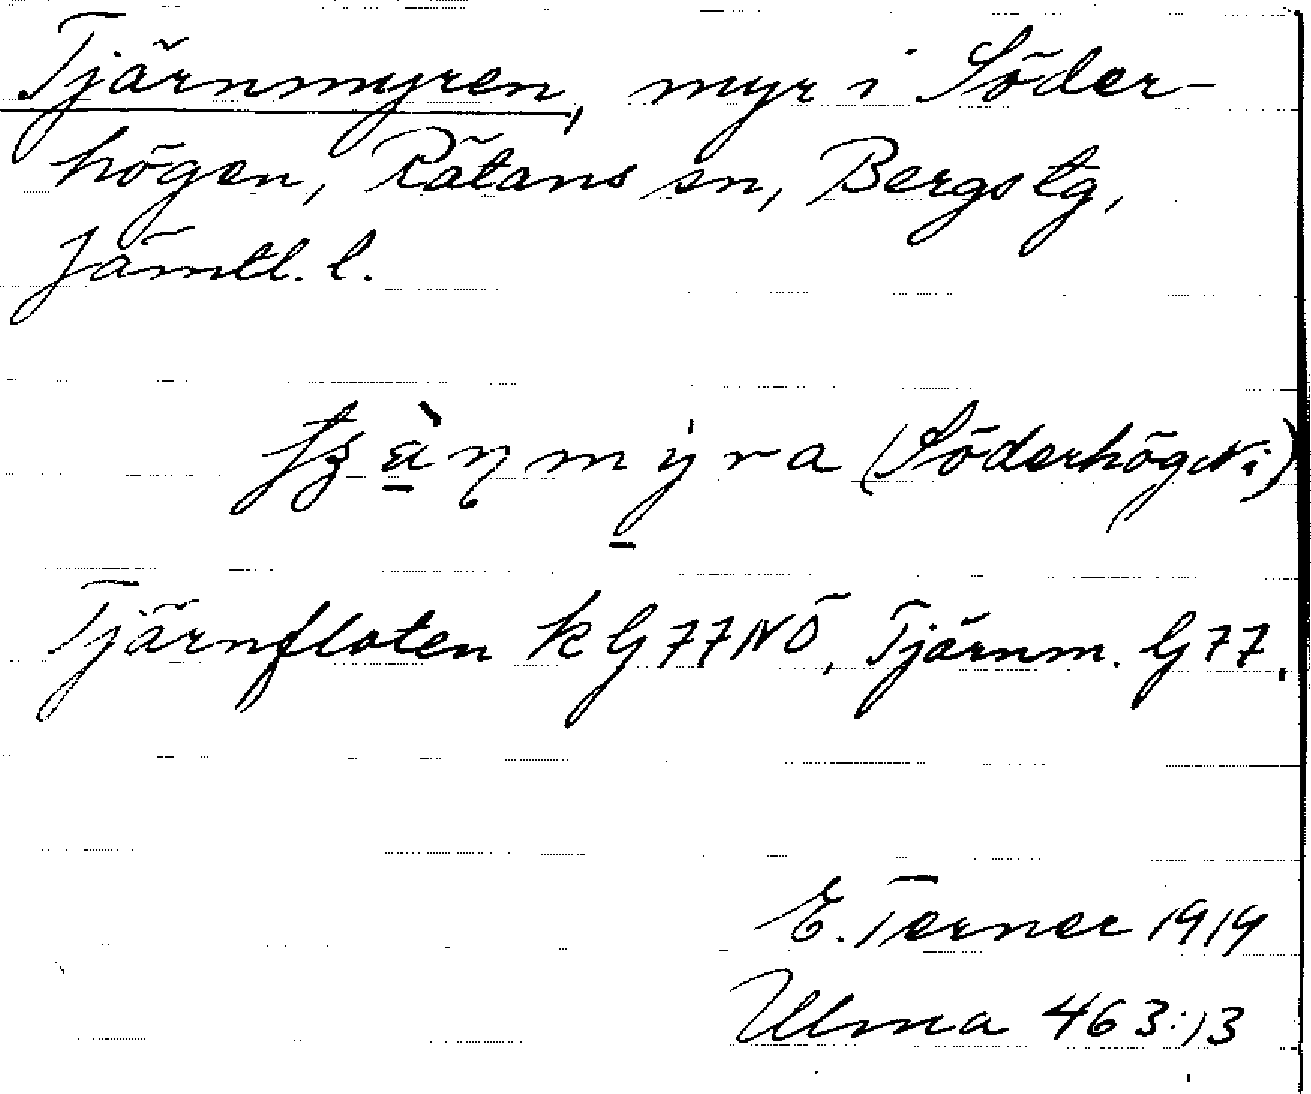 Tjärnmyren, myr i Söder-
högen, Rätans sn, Bergs tg,
Jämtl. l.
(Söderhögen)
Tjärnfloten k G77NO, Tjärnm. G77.
E. Terner 1919
Ulma 463:13